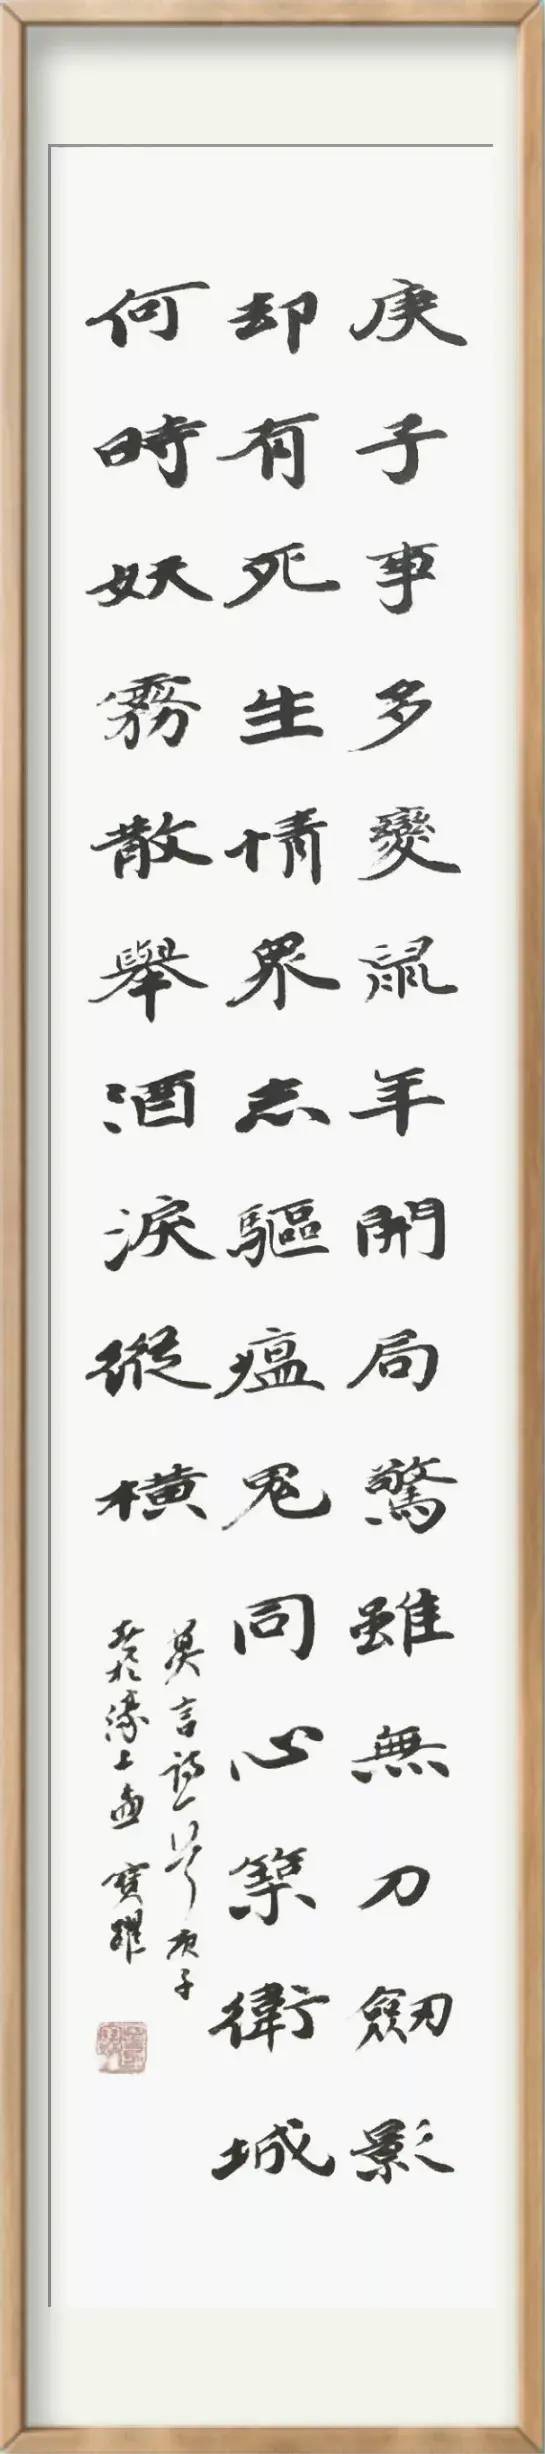 庚子事多變鼠年開局驚雖無刀劒影
却有死生情眾志驅瘟鬼同心築衛城
何時妖霧散舉酒淚縱橫
莫言詩一首庚子
春於濠上 寶躍